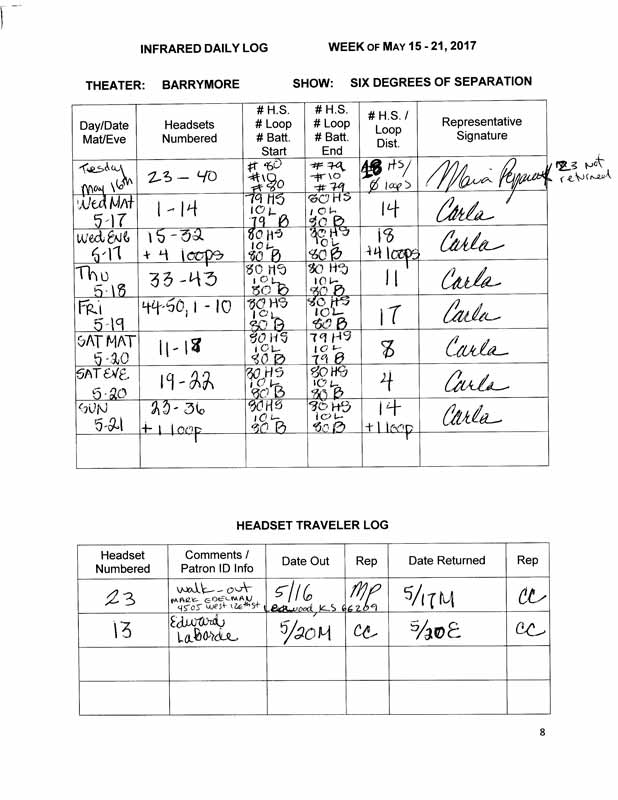 INFRARED DAILY LOG WEEK OF MAY 15 - 21, 2017
THEATER: BARRYMORE SHOW: SIX DEGREES OF SEPARATION
Day/Date Mat/Eve Headsets Numbered # H.S. # Loop # Batt. Start # H.S. # Loop # Batt. End # H.S. / Loop Dist. Representative Signature
Tuesday May 16th 23 - 40 # 80 #10 # 80 # 79 # 10 # 79 18 HS/ 0 loops Maria 23 not returned
Wed MAT 5-17 1 - 14 79 HS 10 L 79 B 80 HS 10L 80 B 14 Carla
Wed ENG 5-17 15 - 32 + 4 loops 80 HS 10L 80 B 80 HS 10L 80B 18 +4 loops Carla
Thu 5-18 33 - 43 80 HS 10L 80 B 80 HS 10L 80 B 11 Carla
FRI 5-19 44-50, 1 - 10 80 HS 10L 80 B 80 HS 10L 80 B 17 Carla
SAT MAT 5-20 11 - 18 80 HS 10L 80 B 79 HS 10L 79 B 8 Carla
SAT EVE 5-20 19 - 22 80 HS 10L 80 B 80 HS 10L 80 B 4 Carla
SUN 5-21 23 - 36 + 1 loop 80 HS 10L 80 B 80 HS 10L 80 B 14 +1 loop Carla
HEADSET TRAVELER LOG
Headset Numbered Comments / Patron ID Info Date Out Rep Date Returned Rep
23 walk-out MARK EDELMAN 4505 West 126th St Leawood, KS 66209 5/16 MP 5/17M CC
13 Edward LaBorde 5/20M CC 5/20E CC
8